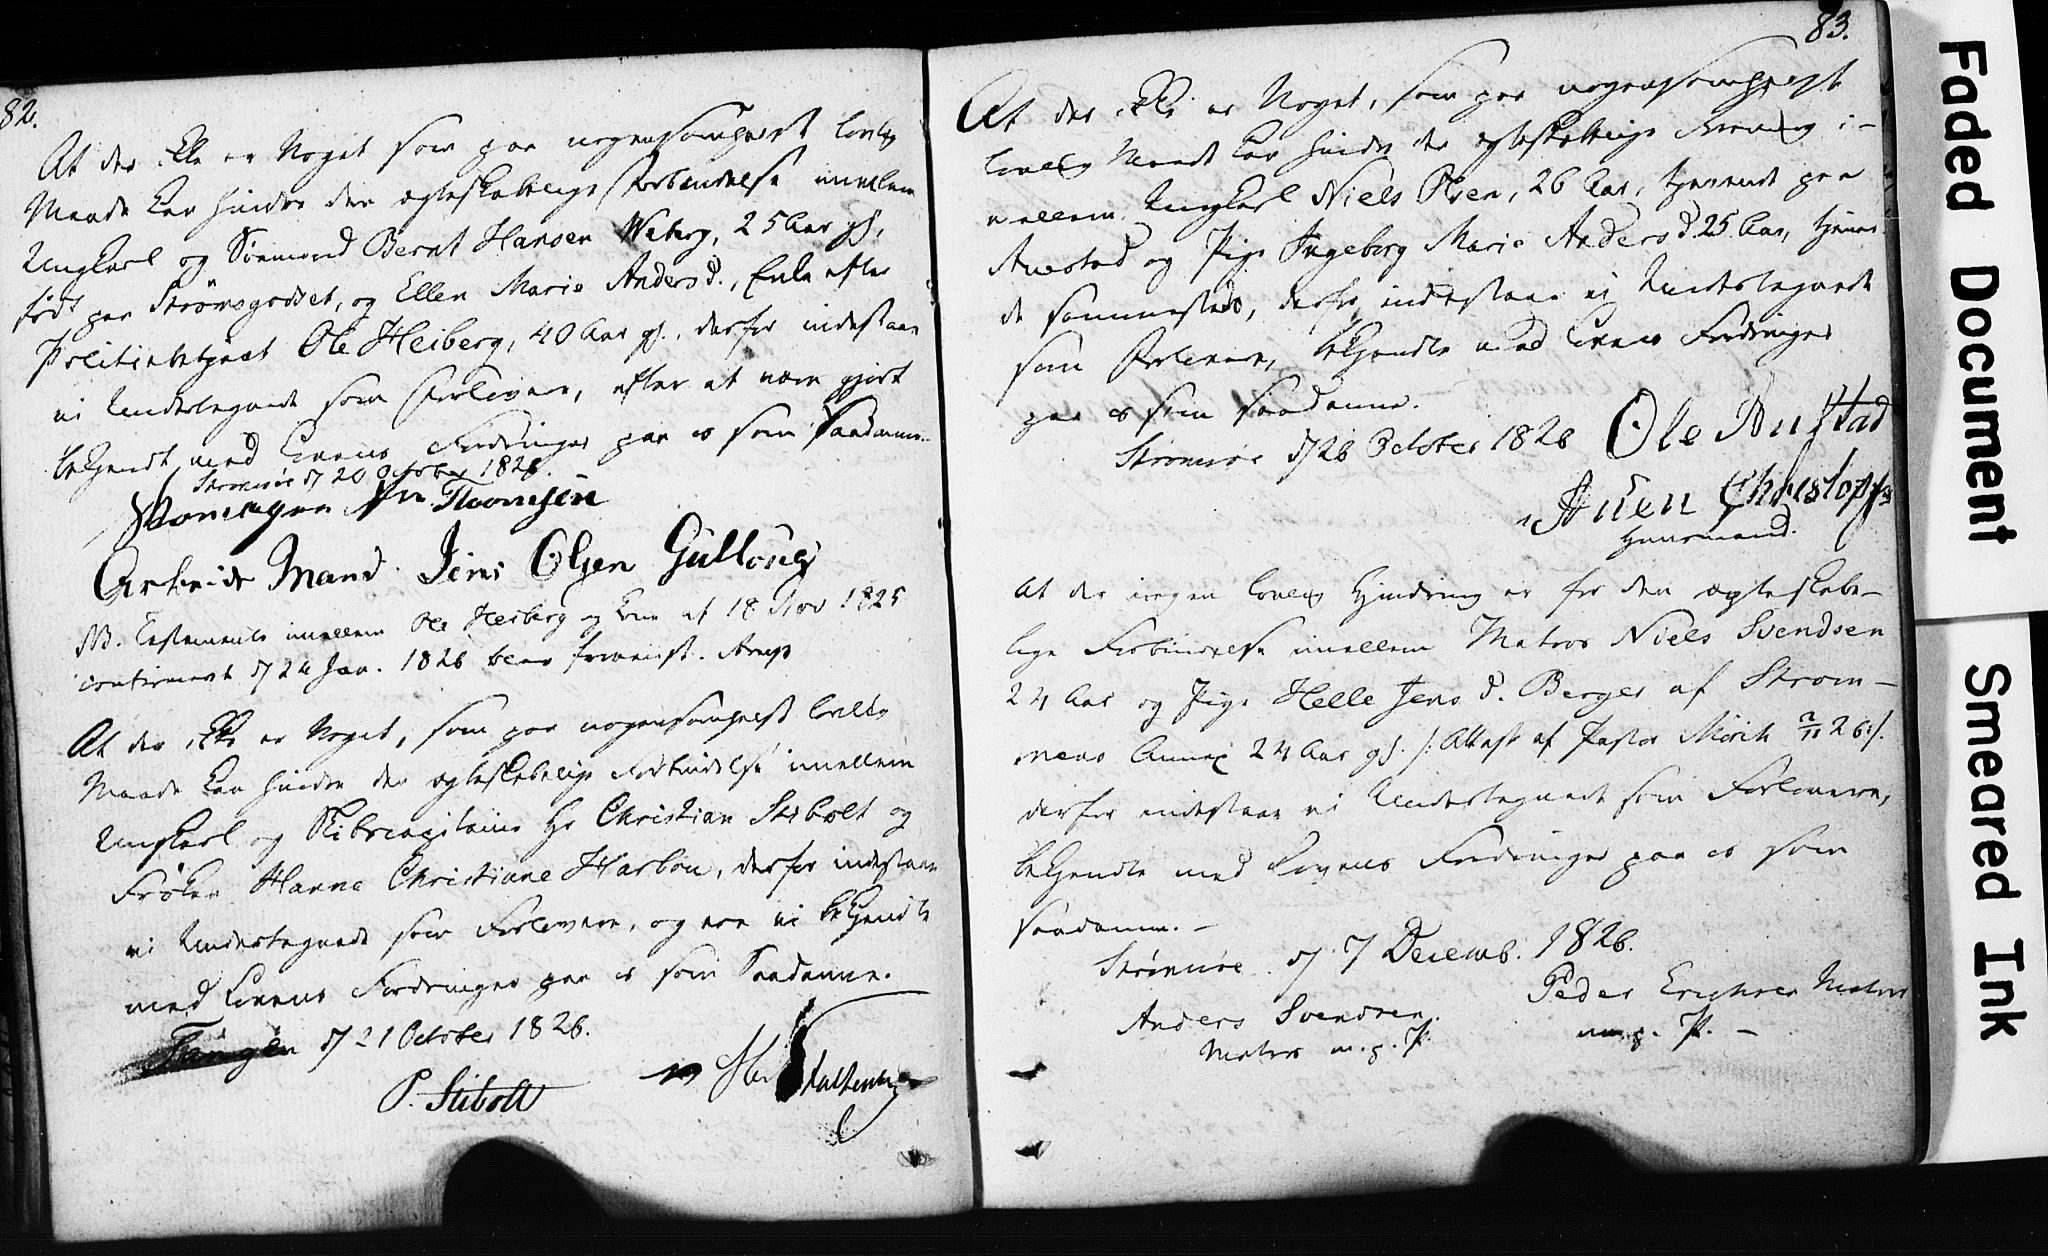 82.
At der ikke er Noget som paa nogensomhelst lovlig
Maade kan hindre den ægteskabelige Forbindelse imellem
Ungkarl og Sømand Bernt Hansen Wiberg, 25 Aar gl,
født paa Strømsgodset, og Ellen Marie Andersd., Enke efter
Politiebetjent Ole Heiberg, 40 Aar gl., derfor indestaae
vi Undertegnede som Forlovere, efter at være gjort
bekjendt med Lovens Fordringer paa os som Saadanne.
Strømsøe d 20 October 1826.
Thomsen
Arbeids Mand Jens Olsen Gulloug
NB. Testamente imellem Ole Heiberg og Kone af 18 Nov 1825
confirmeret d 24 Jan. 1826 blev foreviist. Arup
At der ikke er Noget, som paa nogensomhelst lovlig
Maade kan hindre den ægteskabelige Forbindelse imellem
Ungkarl og Skibscapitaine Hr Christian Stibolt og
Frøken Hanne Christiane Harbou, derfor indestaae
vi Undertegnede som Forlovere, og ere vi bekjendte
med Lovens Fordringer paa os som Saadanne.
Tangen d 21 October 1826.
P. Stibolt
83.
At der ikke er Noget, som paa nogensomhelst
lovlig Maade kan hindre den ægteskabelige Forening i-
mellem Ungkarl Niels Olsen, 26 Aar, tjenende paa
Austad og Pige Ingeborg Marie Andersd. 25 Aar, tjenen-
de sammesteds, derfor indestaae vi Undertegnede
som Forlovere, bekjendte med Lovens Fordringer
paa os som saadanne.
Strømsøe d 26 October 1826 Ole Austad
Christophers
Huusmand.
At der ingen lovlig Hindring er for den ægteskabe-
lige Forbindelse imellem Matros Niels Svendsen
24 Aar og Pige Helle Jensd. Berger af Strøm-
mens Annex 24 Aar gl. /: Attest af Pastor Mørch 2/11 26:/.
derfor indestaae vi Undertegnede som Forlovere,
bekjendte med Lovens Fordringer paa os som
saadanne. -
Strømsøe d 7 Decemb. 1826.
Anders Svendsen. Peder Erichsen Matros
Matros m. p. P. m. p. P. -
Faded Document
Smeared Ink